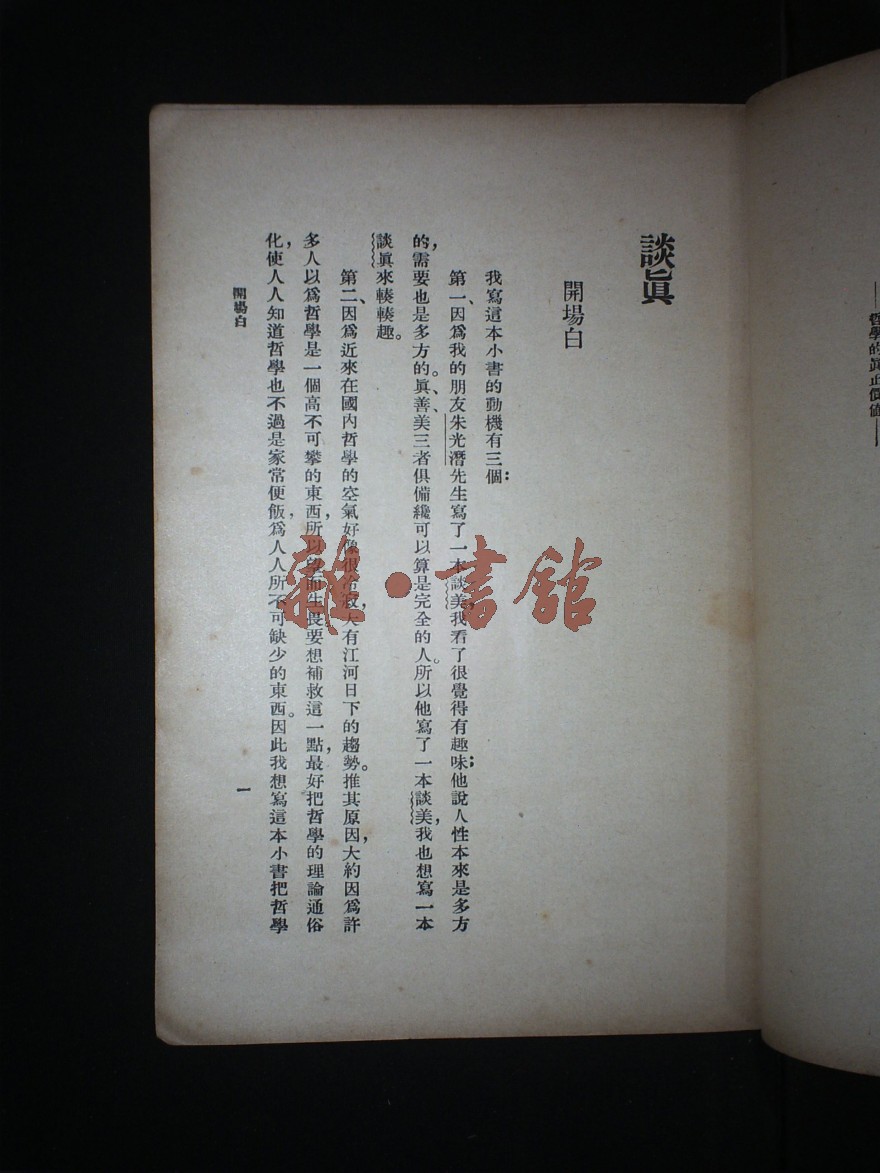 ——哲學的眞正價值——
談眞
開場白
我寫這本小書的動機有三個：
第一、因爲我的朋友朱光潛先生寫了一本談美，我看了很覺得有趣味；他說人性本來是多方
的，需要也是多方的。眞、善、美三者俱備纔可以算是完全的人。所以他寫了一本談美，我也想寫一本
談眞來輳輳趣。
第二、因爲近來在國內哲學的空氣好像很冷寂，大有江河日下的趨勢。推其原因，大約因爲許
多人以爲哲學是一個高不可攀的東西，所以望而生畏要想補救這一點，最好把哲學的理論通俗
化，使人人知道哲學也不過是家常便飯，爲人人所不可缺少的東西。因此我想寫這本小書把哲學
開場白
一
雜·書館